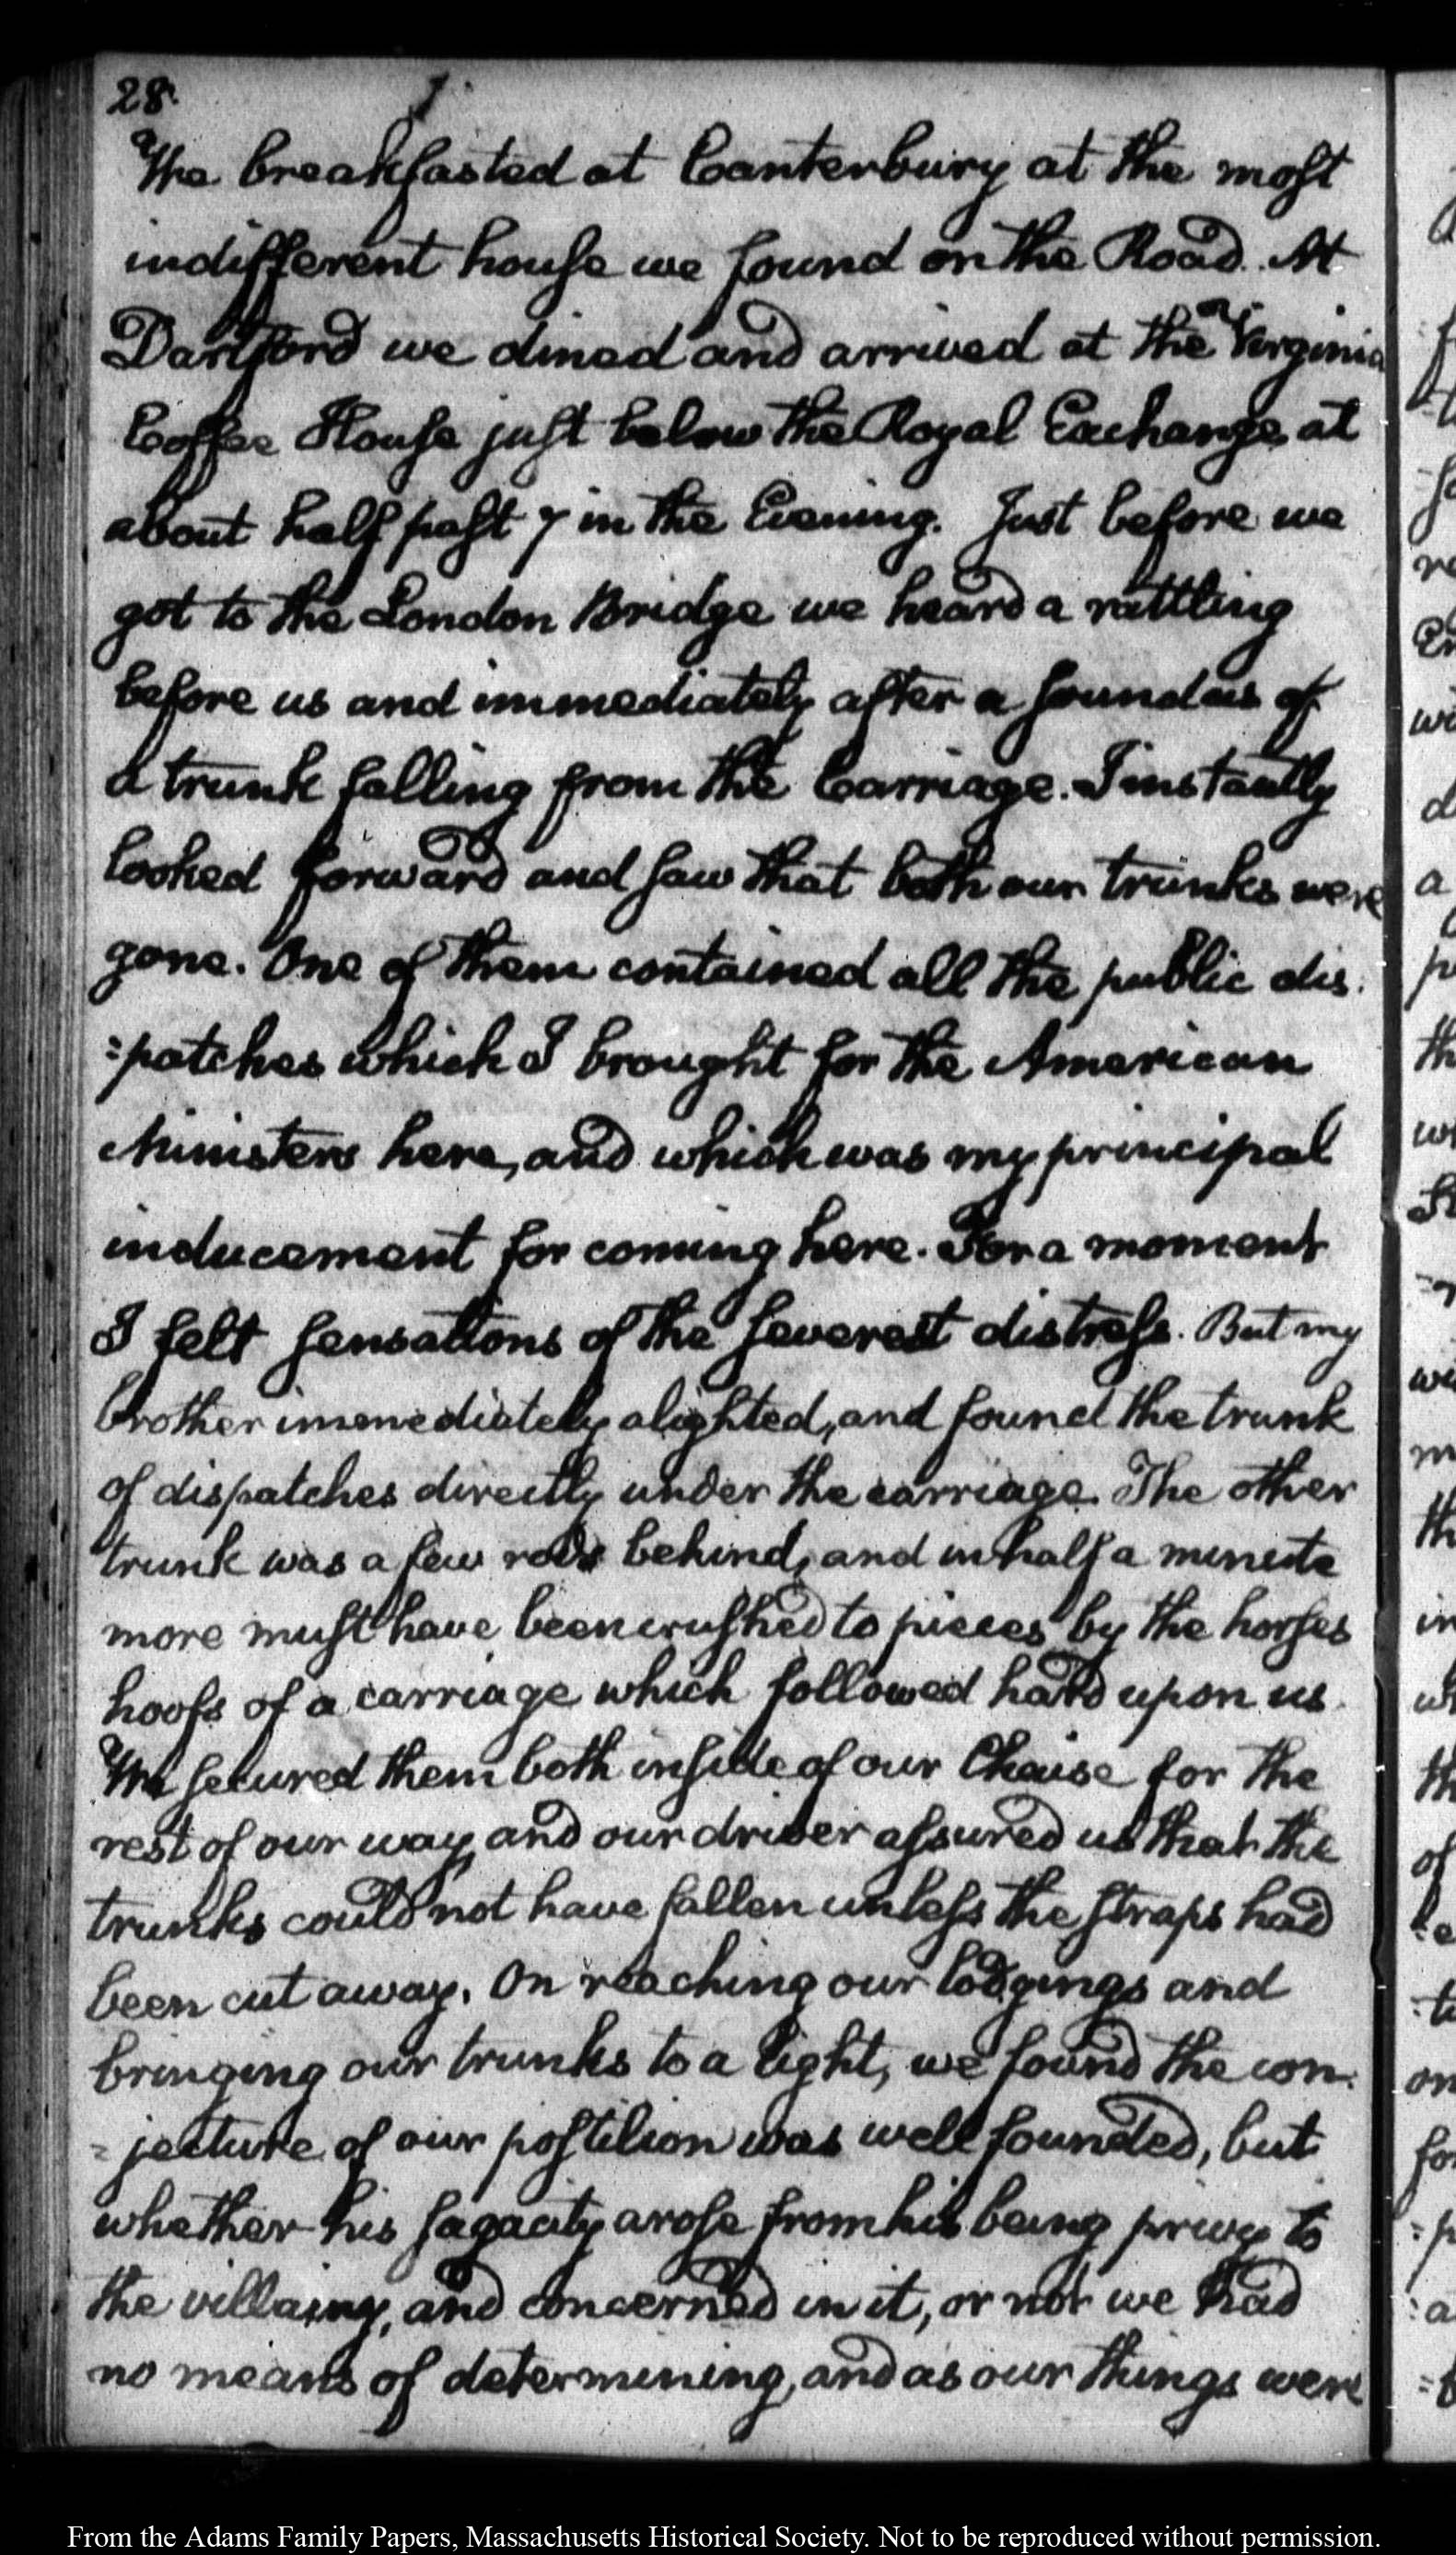 28.
We breakfasted at Canterbury at the most
indifferent house we found on the Road. At
Dartford we dined and arrived at the Virginia
Coffee House just below the Royal Exchange, at
about half past 7 in the Evening. Just before we
got to the London Bridge we heard a rattling
before us and immediately after a sound as of
a trunk falling from the Carriage. I instantly
looked forward and saw that both our trunks were
gone. One of them contained all the public dis-
=patches which I brought for the American
Ministers here, and which was my principal
inducement for coming here. For a moment
I felt sensations of the severest distress. But my
brother immediately alighted, and found the trunk
of dispatches directly under the carriage. The other
trunk was a few rods behind, and in half a minute
more must have been crushed to pieces by the horses
hoofs of a carriage which followed hard upon us.
We secured them both inside of our Chaise for the
rest of our way, and our driver assured us that the
trunks could not have fallen unless the straps had
been cut away. On reaching our lodgings and
bringing our trunks to a light, we found the con-
=jecture of our postilion was well founded, but
whether his sagacity arose from his being privy to
the villainy, and concerned in it, or not we had
no means of determining, and as our things were
From the Adams Family Papers, Massachusetts Historical Society. Not to be reproduced without permission.